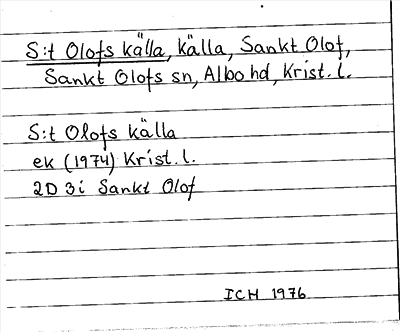 S:t Olofs källa, källa, Sankt Olof,
Sankt Olofs sn, Albo hd, Krist. l.
S:t Olofs källa
ek (1974) Krist. l.
2D 3i Sankt Olof
ICH 1976